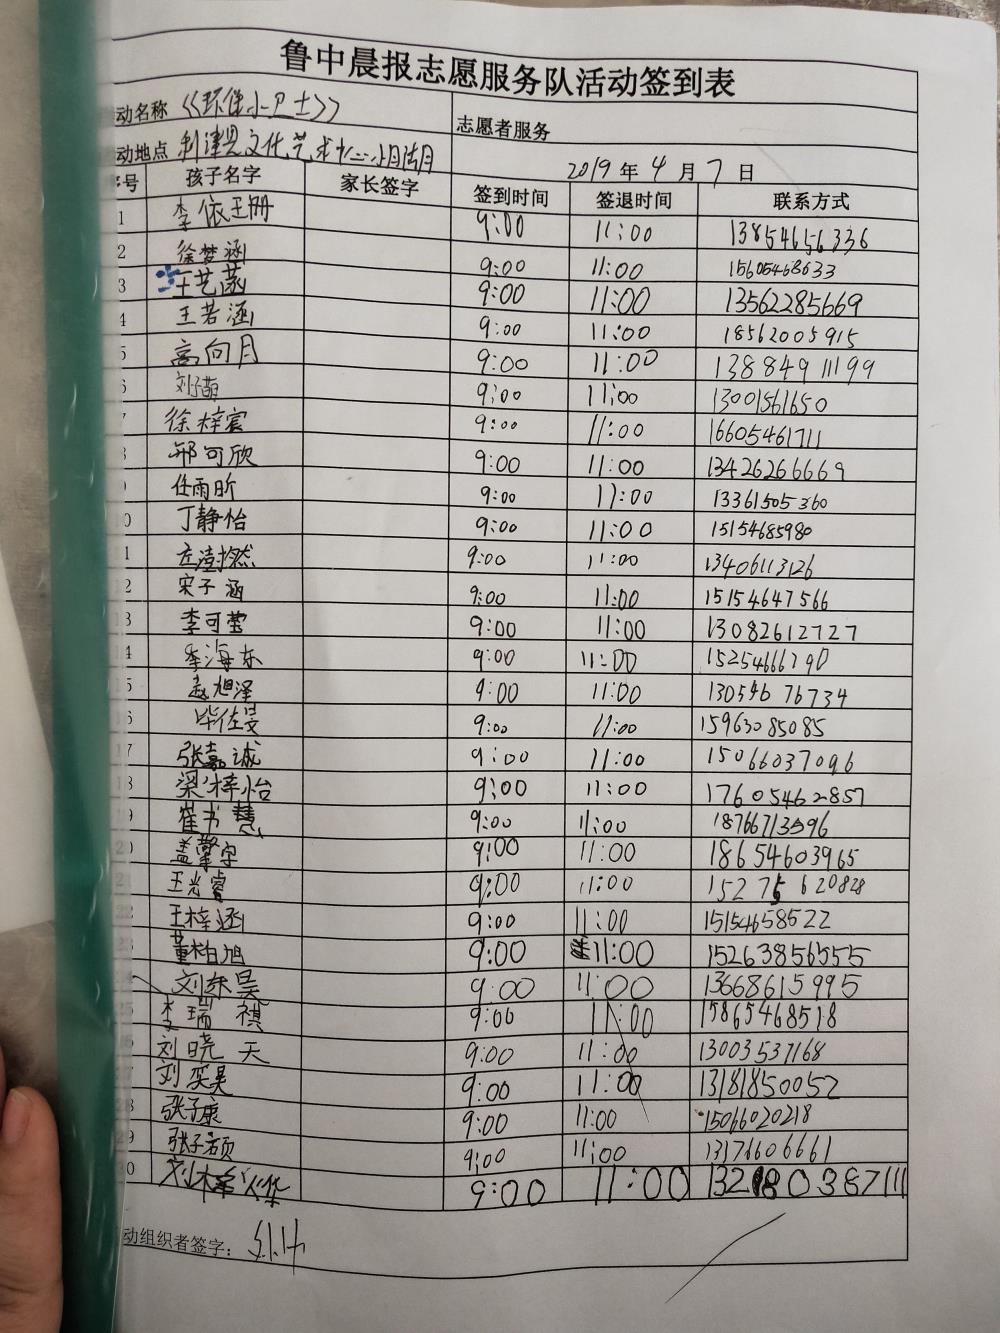 鲁中晨报志愿服务队活动签到表
动名称 《环保小卫士》 志愿者服务
动地点 利津县文化艺术中心 2019年4月7日
序号 孩子名字 家长签字 签到时间 签退时间 联系方式
1 李依玉册 9:00 11:00 13854656336
2 徐梦涵 9:00 11:00 15605468633
3 王艺菡 9:00 11:00 13562285669
4 王若涵 9:00 11:00 18562005915
5 高向月 9:00 11:00 13884911199
6 刘子萌 9:00 11:00 13001561650
7 徐梓宸 9:00 11:00 16605461711
8 邢可欣 9:00 11:00 13426266669
9 任雨昕 9:00 11:00 13361505360
10 丁静怡 9:00 11:00 15154685980
11 左澍燃 9:00 11:00 13406113126
12 宋子涵 9:00 11:00 15154647566
13 李可莹 9:00 11:00 13082612727
14 李海东 9:00 11:00 15254666790
15 赵旭泽 9:00 11:00 13054676734
16 毕佐旻 9:00 11:00 15963085085
17 张嘉诚 9:00 11:00 15066037096
18 梁梓怡 9:00 11:00 17605462857
19 崔书慧 9:00 11:00 18766713596
20 盖擎宇 9:00 11:00 18654603965
21 王光睿 9:00 11:00 15275620828
22 王梓涵 9:00 11:00 15154658522
23 董柏旭 9:00 11:00 15263856555
24 刘东昊 9:00 11:00 13668615995
25 李瑞祺 9:00 11:00 15865468518
26 刘晓天 9:00 11:00 13003537168
27 刘奕昊 9:00 11:00 13181850052
28 张子康 9:00 11:00 15066020218
29 张子颖 9:00 11:00 13176606661
30 刘梓烨 9:00 11:00
动组织者签字: